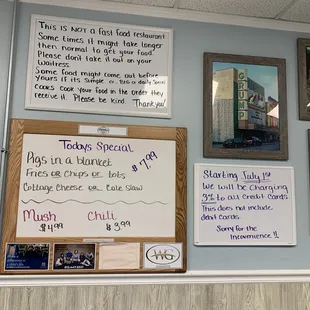 This is NOT a fast food restaurant
Some times it might take longer
then normal to get your food.
Please don't take it out on your
Waitress.
Some food might come out before
yours if its simple or BLG or daily Special
Cooks cook your food in the order they
receive it. Please be kind. Thank you!
Todays Special
Pigs in a blanket
Fries or Chips or tots
$7.99
Cottage Cheese or Cole Slaw
Mush
$4.99
Chili
$3.99
WG
GRUMP
Starting July 1st
We will be charging
3% to all Credit Cards
This does not include
debit cards.
Sorry for the
Inconvenience!!